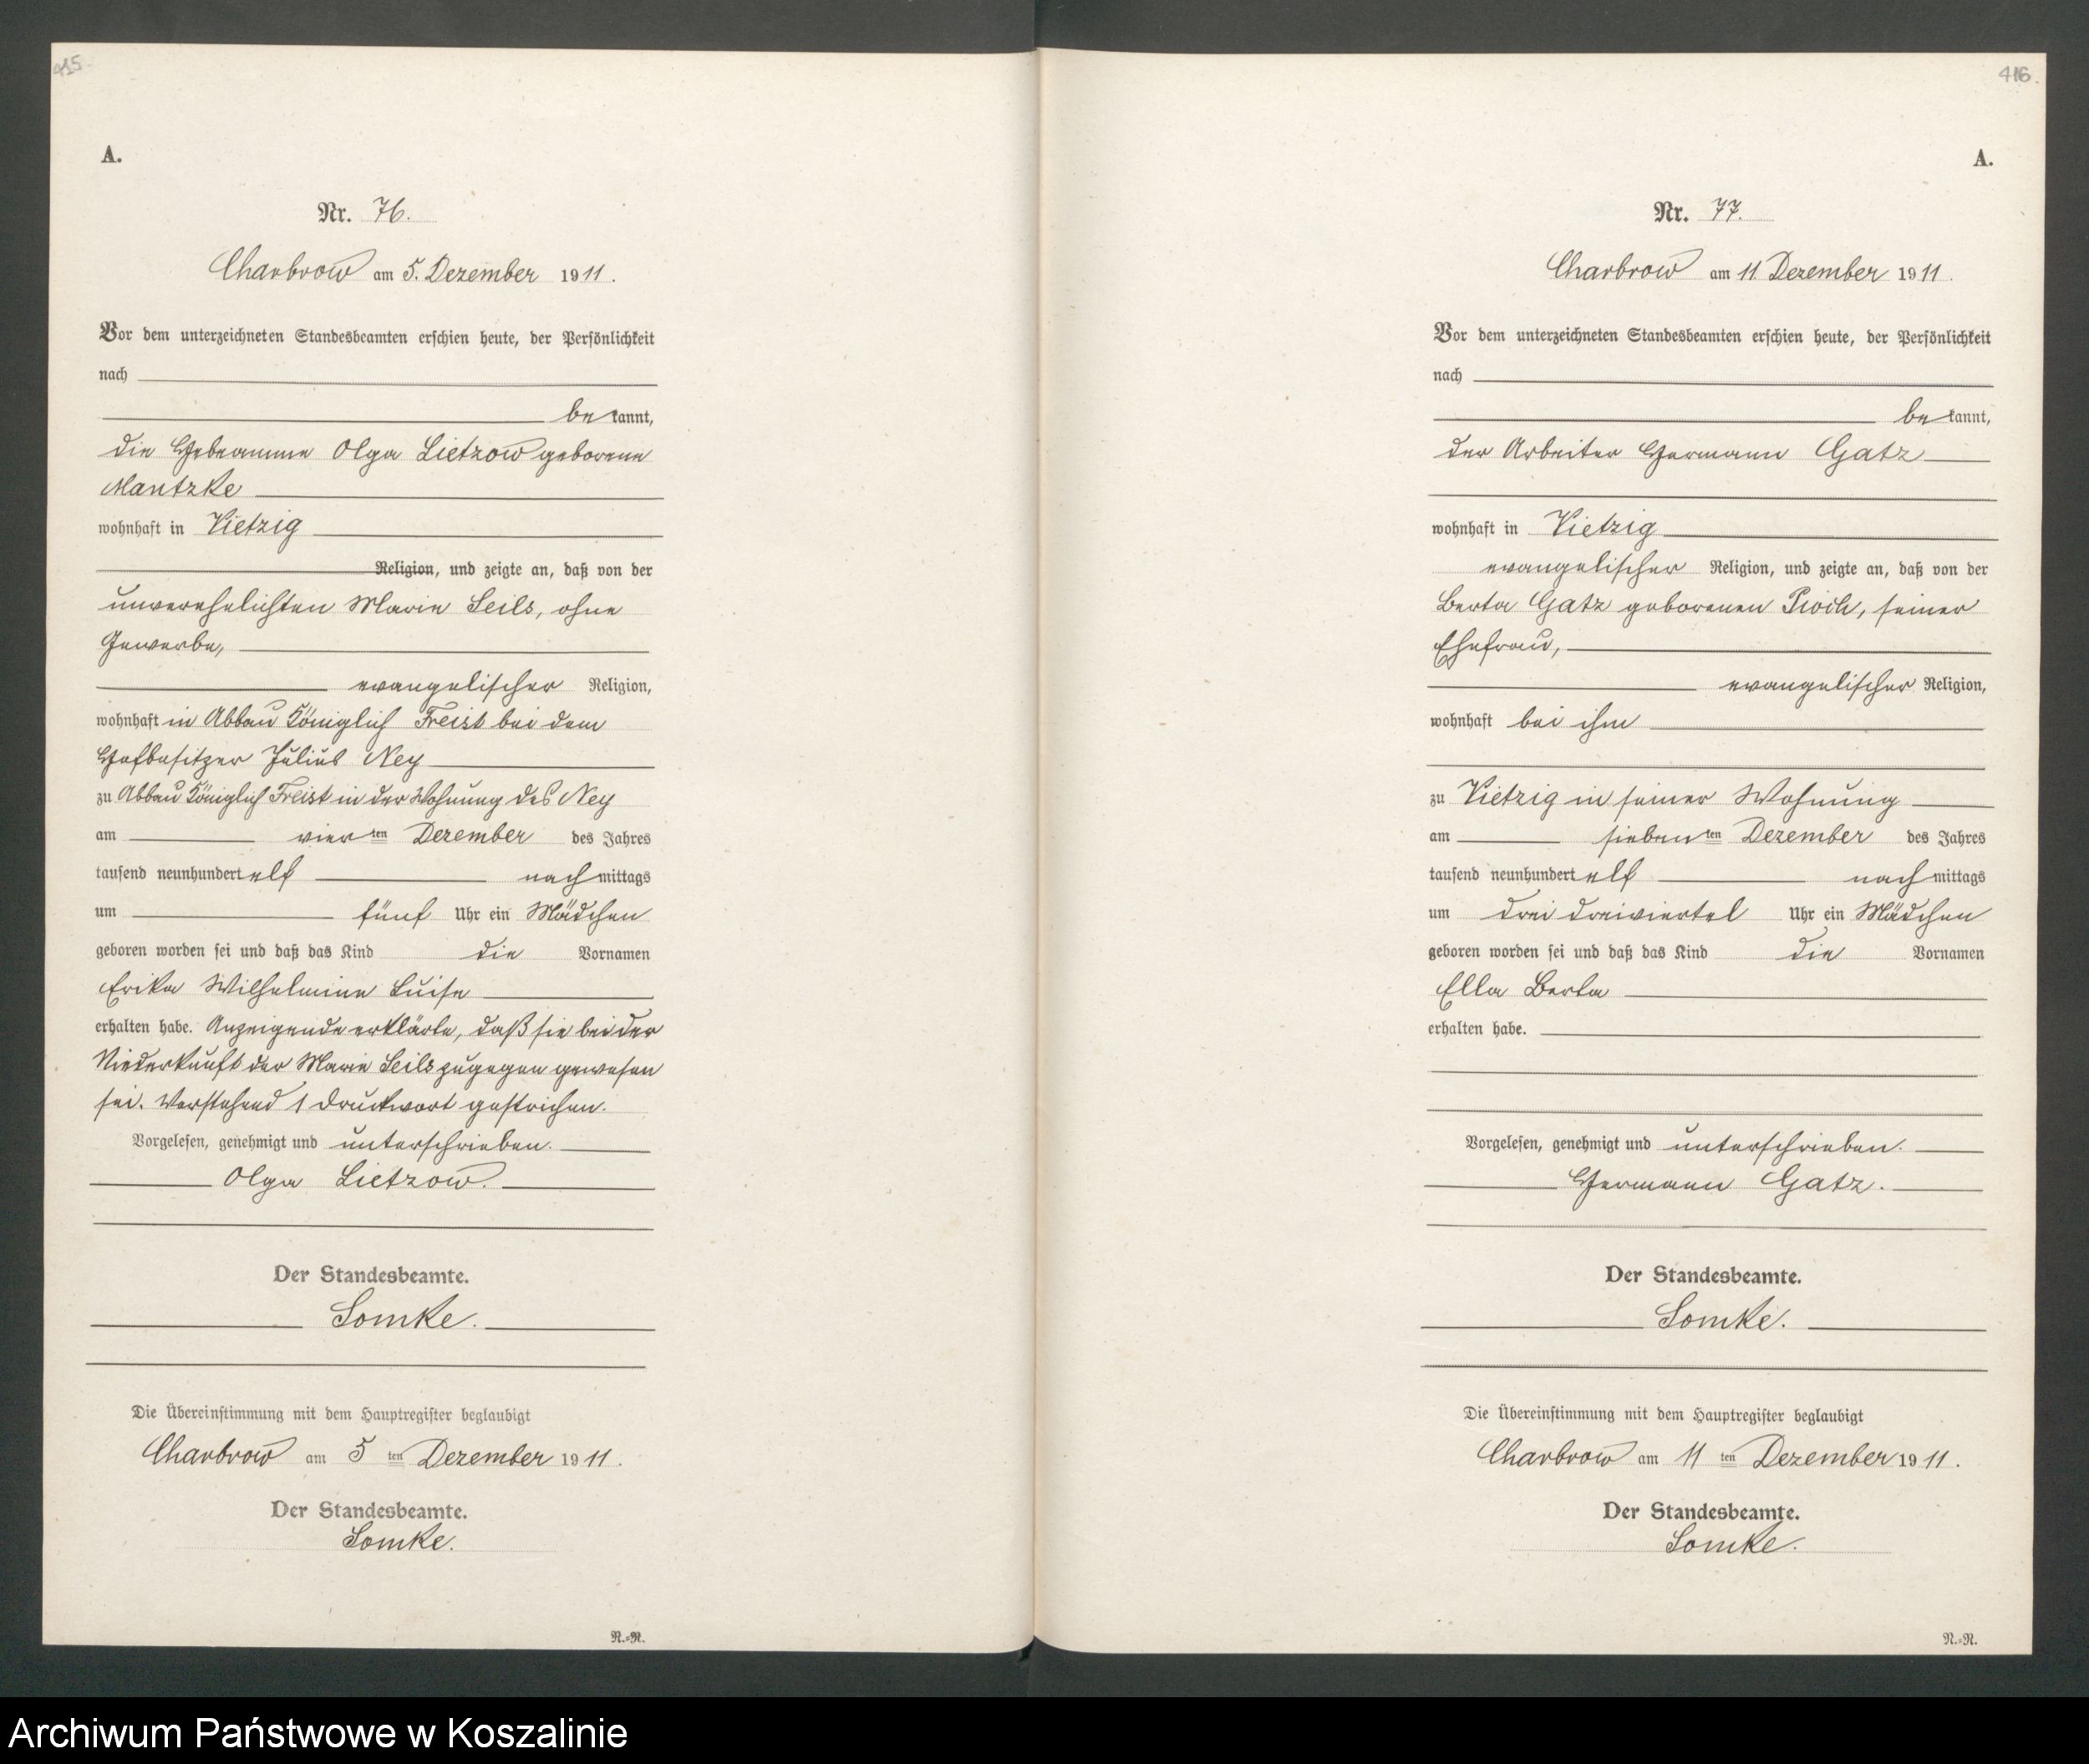 415.
A.
Nr. 76.
Charbrow am 5. Dezember 1911.
Vor dem unterzeichneten Standesbeamten erschien heute, der Persönlichkeit
nach
bekannt,
die Hebeamme Olga Lietzow geborene
Mantzke
wohnhaft in Vietzig
Religion, und zeigte an, daß von der
unverehelichten Marie Seils, ohne
Gewerbe,
evangelischer Religion,
wohnhaft in Abbau Königlich Freist bei dem
Hofbesitzer Julius Ney
zu Abbau Königlich Freist in der Wohnung des Ney
am vierten Dezember des Jahres
tausend neunhundert elf nachmittags
um fünf Uhr ein Mädchen
geboren worden sei und daß das Kind die Vornamen
Erika Wilhelmine Luise
erhalten habe. Anzeigende erklärte, daß sie bei der
Niederkunft der Marie Seils zugegen gewesen
sei. Vorstehend 1 Druckwort gestrichen.
Vorgelesen, genehmigt und unterschrieben.
Olga Lietzow.
Der Standesbeamte.
Lomke.
Die Übereinstimmung mit dem Hauptregister beglaubigt
Charbrow am 5 ten Dezember 1911.
Der Standesbeamte.
Lomke.
R.=R.
416.
A.
Nr. 77.
Charbrow am 11 Dezember 1911.
Vor dem unterzeichneten Standesbeamten erschien heute, der Persönlichkeit
nach
bekannt,
der Arbeiter Hermann Gatz
wohnhaft in Vietzig
evangelischer Religion, und zeigte an, daß von der
Berta Gatz geborenen Pioch, seiner
Ehefrau,
evangelischer Religion,
wohnhaft bei ihm
zu Vietzig in seiner Wohnung
am siebenten Dezember des Jahres
tausend neunhundert elf nachmittags
um drei dreiviertel Uhr ein Mädchen
geboren worden sei und daß das Kind die Vornamen
Ella Berta
erhalten habe.
Vorgelesen, genehmigt und unterschrieben.
Hermann Gatz.
Der Standesbeamte.
Lomke.
Die Übereinstimmung mit dem Hauptregister beglaubigt
Charbrow am 11 ten Dezember 1911.
Der Standesbeamte.
Lomke.
R.=R.
Archiwum Państwowe w Koszalinie